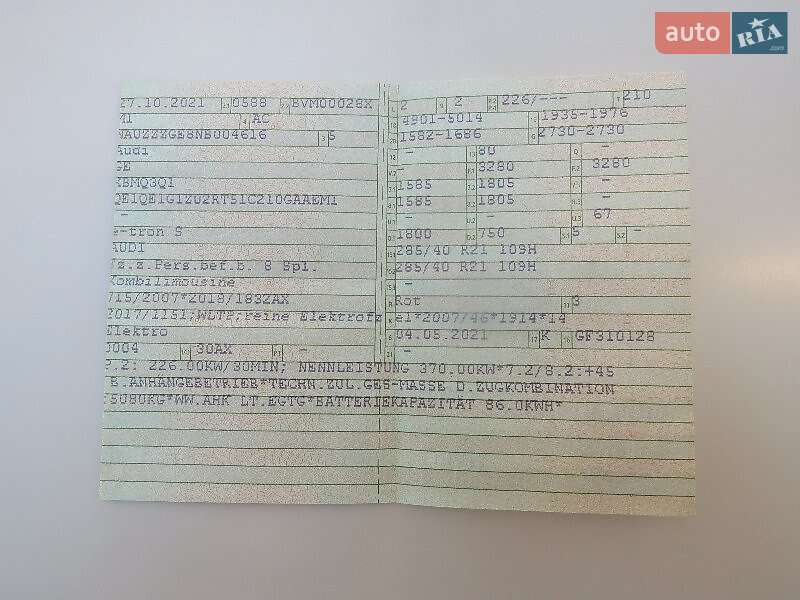 auto RIA .com
27.10.2021 0588 BVM00028X
M1 AC
WAUZZZGE8NB004616 5
Audi
GE
XBMQ3Q1
QE1QE1G1Z02RT51C210GAAEM1
-
e-tron S
AUDI
Fz.z.Pers.bef.b. 8 Spl.
Kombilimousine
715/2007*2018/1832AX
2017/1151;WLTP;reine Elektrofz
Elektro
0004 30AX -
2 2 226/--- 210
4901-5014 1935-1976
1582-1686 2730-2730
- 80 -
- 3280 3280
1585 1805 -
1585 1805 -
- - 67
1800 750 5 -
285/40 R21 109H
285/40 R21 109H
-
Rot 3
e1*2007/46*1914*14
04.05.2021 K GF310128
-
P.2: 226.00KW/30MIN; NENNLEISTUNG 370.00KW*7.2/8.2:+45
B.ANHÄNGEBETRIEB*TECHN.ZUL.GES-MASSE D.ZUGKOMBINATION
5080KG*WW.AHK LT.EGTG*BATTERIEKAPAZITÄT 86.0KWH*